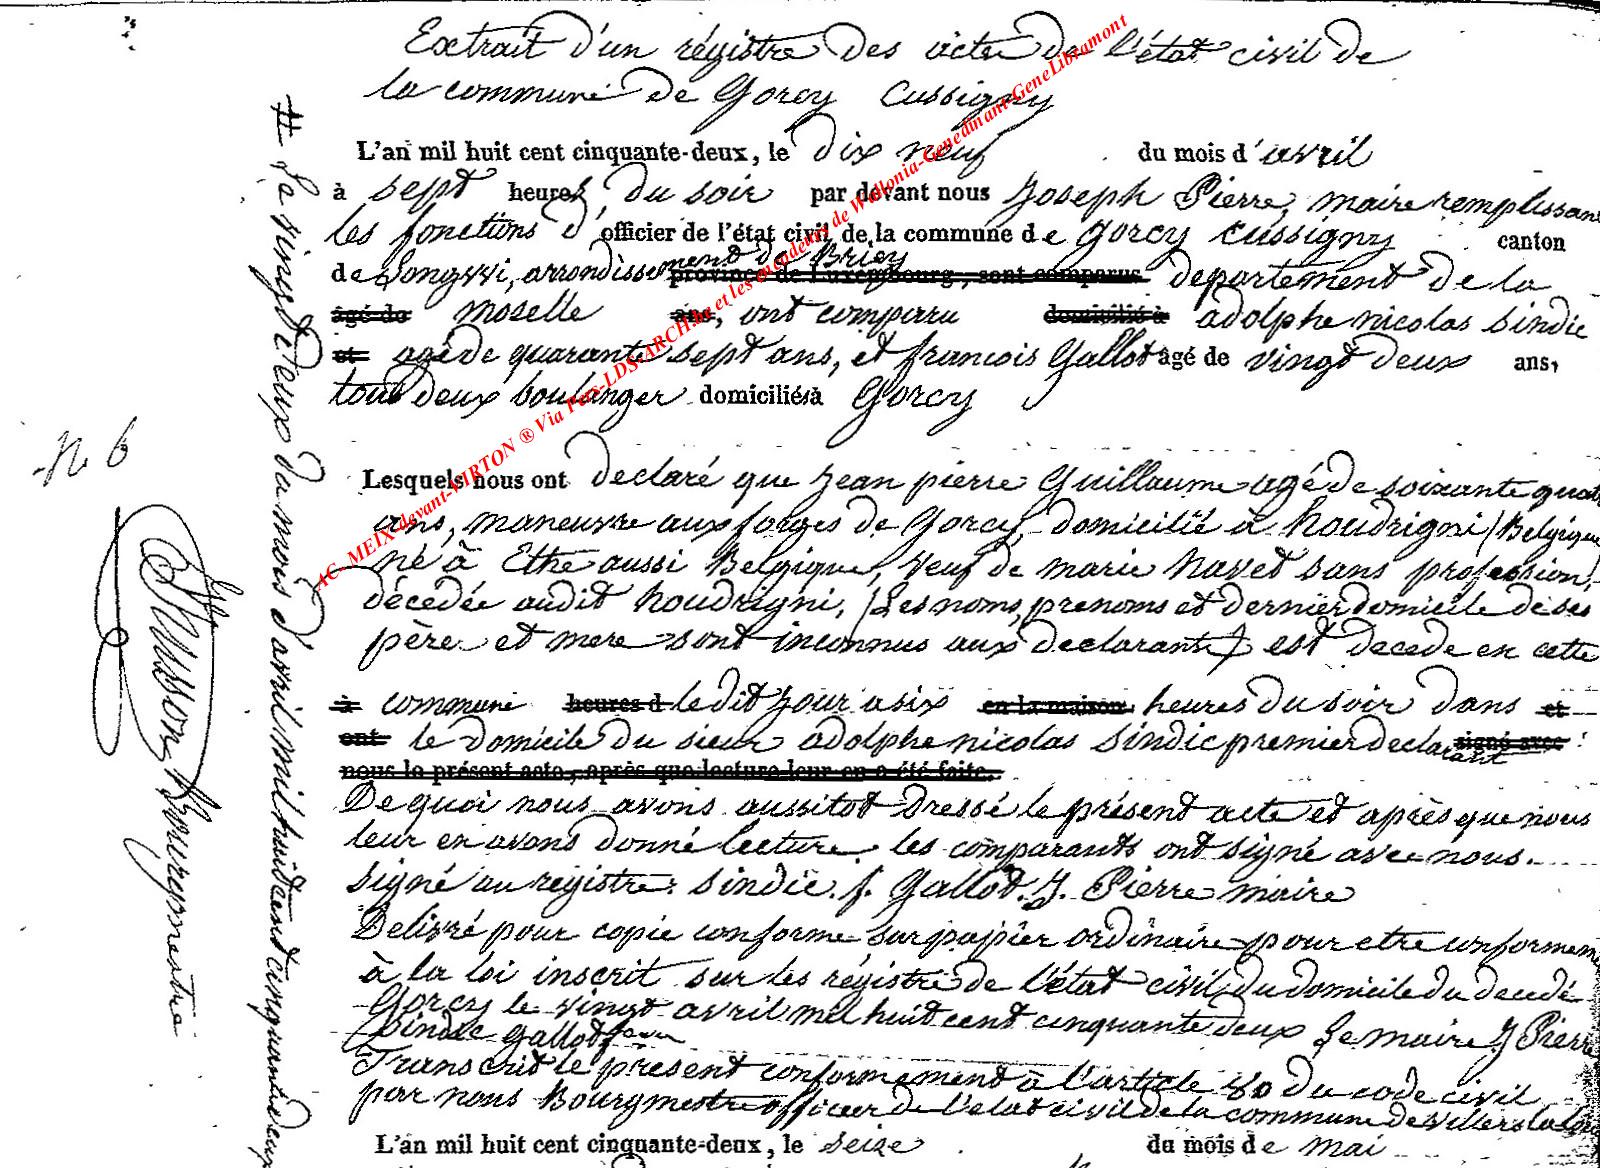 Extrait d'un régistre des acte de l'état civil de
la commune de Gorcy Cussigny
L'an mil huit cent cinquante-deux, le dix neuf du mois d'avril
à sept heures du soir par devant nous Joseph Pierre, maire remplissant
les fonctions d'officier de l'état civil de la commune de Gorcy Cussigny canton
de Longwi, arrondissement de Briey province de Luxembourg, sont comparus departement de la
âgé de moselle ans, ont comparu domicilié à adolphe nicolas Sindic
et agé de quarante sept ans, et francois Gallot âgé de vingt deux ans,
tous deux boulanger domiciliés à Gorcy
Lesquels nous ont declaré que jean pierre Guillaume agé de soixante quatre
ans, maneuvre aux forges de Gorcy, domicilié à houdrigni (Belgique
né à Ethe aussi Belgique, veuf de marie havet sans profession,
décedée audit houdrigni, (Les noms, prenoms et dernier domicile de ses
père et mere sont inconnus aux declarants) est decede en cette
à commune heures d ledit jour a six en la maison heures du soir dans et
ont le domicile du sieur adolphe nicolas Sindic premier declarant signé avec
nous le présent acte, après que lecture leur en a été faite.
De quoi nous avons aussitot dressé le présent acte et après que nous
leur en avons donné lecture les comparants ont signé avec nous.
signé au registre: Sindic. f. Gallot. J. Pierre maire
Delivré pour copie conforme sur papier ordinaire pour etre conformement
à la loi inscrit sur les régistre de l'état civil du domicile du decedé
Gorcy le vingt avril mil huit cent cinquante deux Le maire J Pierre
Sindic Gallot
Transcrit le présent conformement à l'article 80 du code civil
par nous Bourgmestre officier de l'etat civil de la commune de Villers la loue
L'an mil huit cent cinquante-deux, le seize du mois de mai
# Le vingt deux du mois d'avril mil huit cent cinquante deux
N 6
Husson Bourgmestre
AC-MEIX-devant-VIRTON ® Via Pete-LDS-ARCH.be et les encodeurs de Wallonia-Genedinant-GeneLibramont